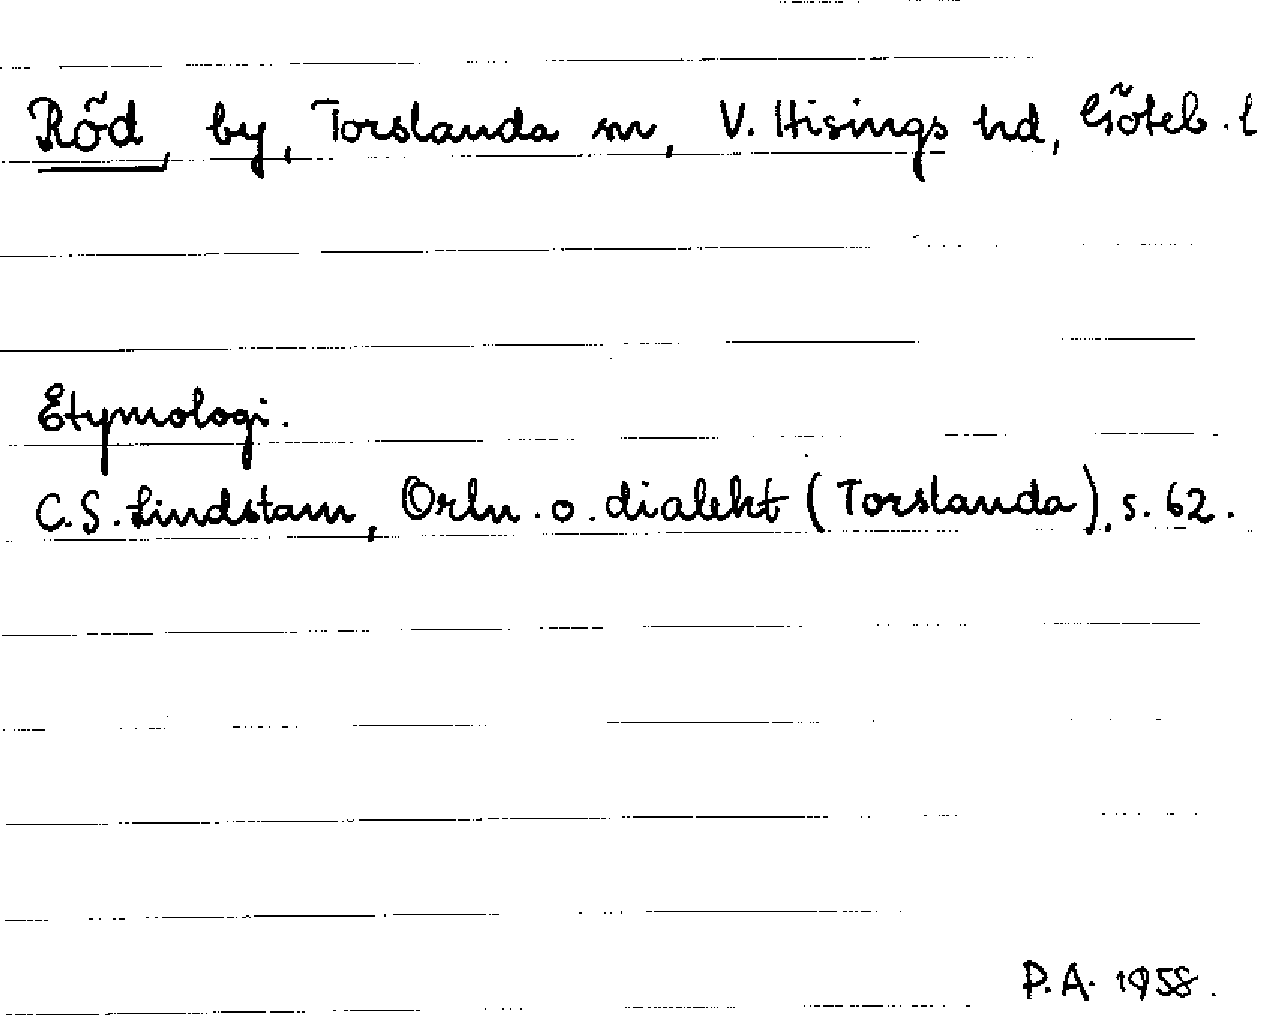 Röd, by, Torslanda sn, V. Hisings hd, Göteb. l
Etymologi.
C.S. Lindstam, Ortn. o. dialekt (Torslanda), s. 62.
P.A. 1958.